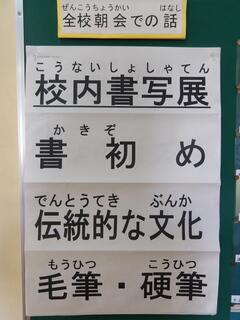 ぜんこうちょうかい　はなし
全校朝会での話
こうないしょしゃてん
校内書写展
かきぞ
書初め
でんとうてき　ぶんか
伝統的な文化
もうひつ　こうひつ
毛筆・硬筆